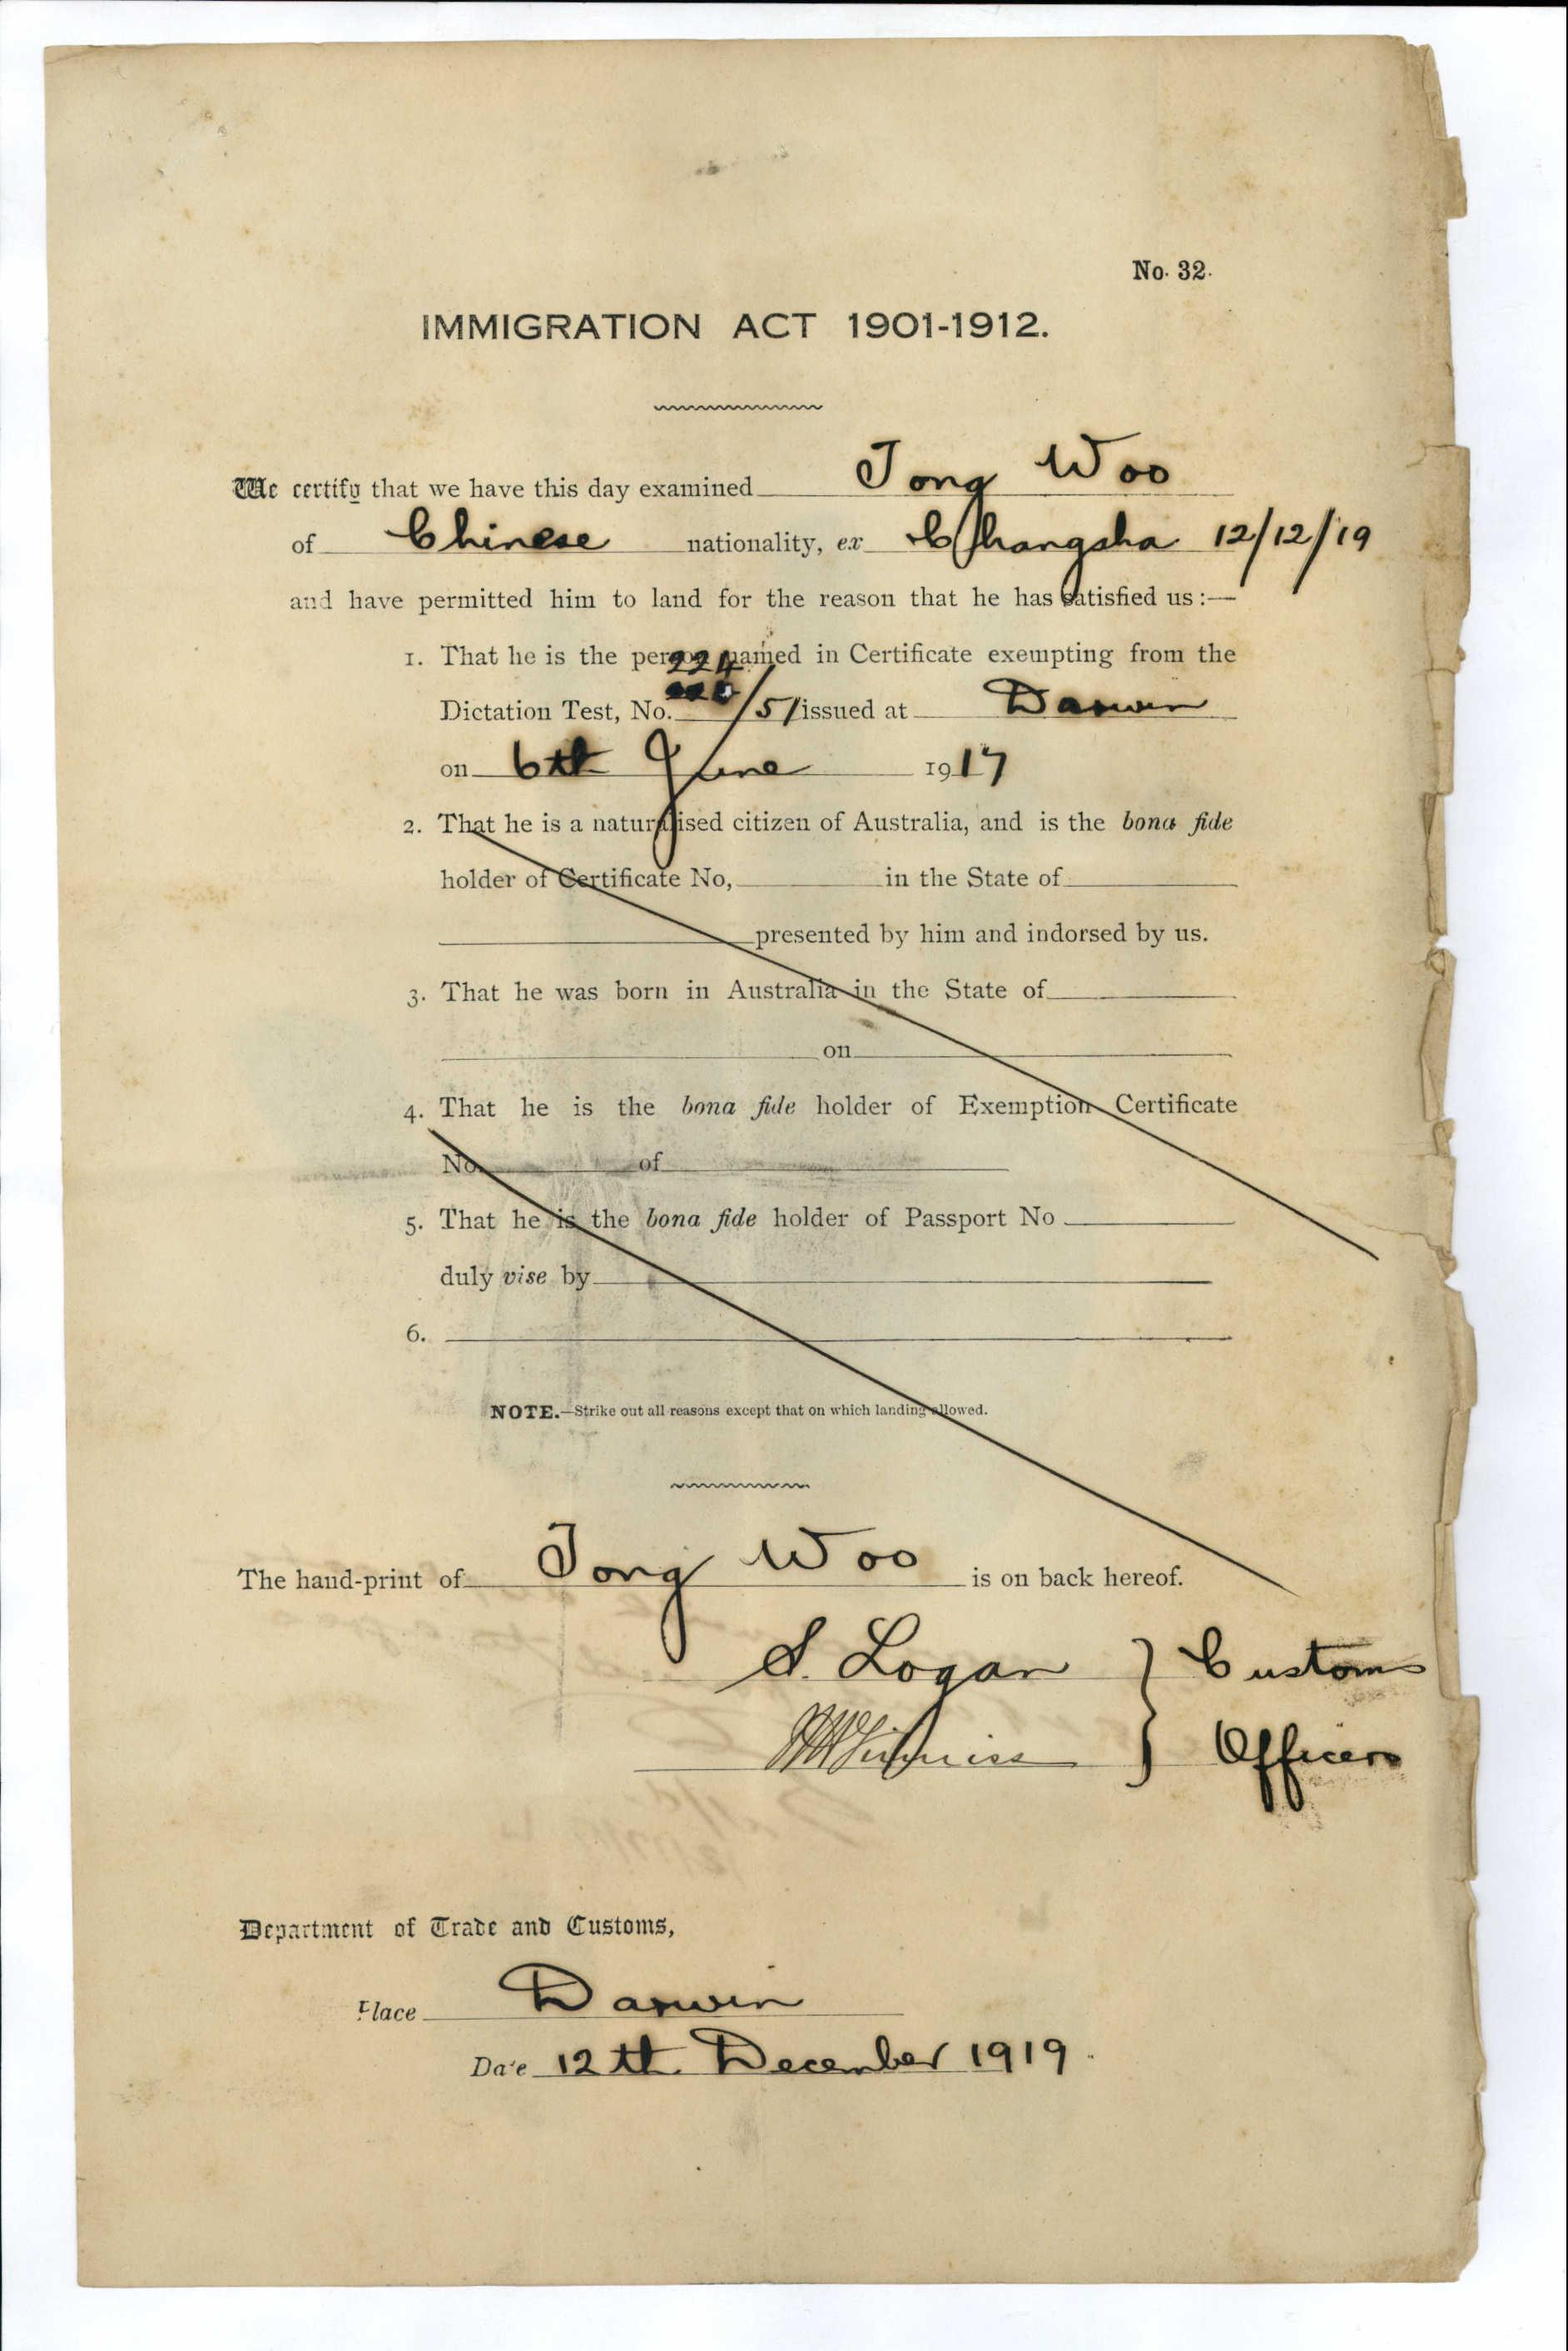 No. 32.
IMMIGRATION ACT 1901-1912.
We certify that we have this day examined Tong Woo
of Chinese nationality, ex Changsha 12/12/19
and have permitted him to land for the reason that he has satisfied us:—
1. That he is the person named in Certificate exempting from the
224
Dictation Test, No. /51 issued at Darwin
on 6th June 1917
2. That he is a naturalised citizen of Australia, and is the bona fide
holder of Certificate No, in the State of
presented by him and indorsed by us.
3. That he was born in Australia in the State of
on
4. That he is the bona fide holder of Exemption Certificate
No. of
5. That he is the bona fide holder of Passport No
duly vise by
6.
NOTE.—Strike out all reasons except that on which landing allowed.
The hand-print of Tong Woo is on back hereof.
S. Logan } Customs
} Officers
Department of Trade and Customs,
Place Darwin
Date 12th December 1919.